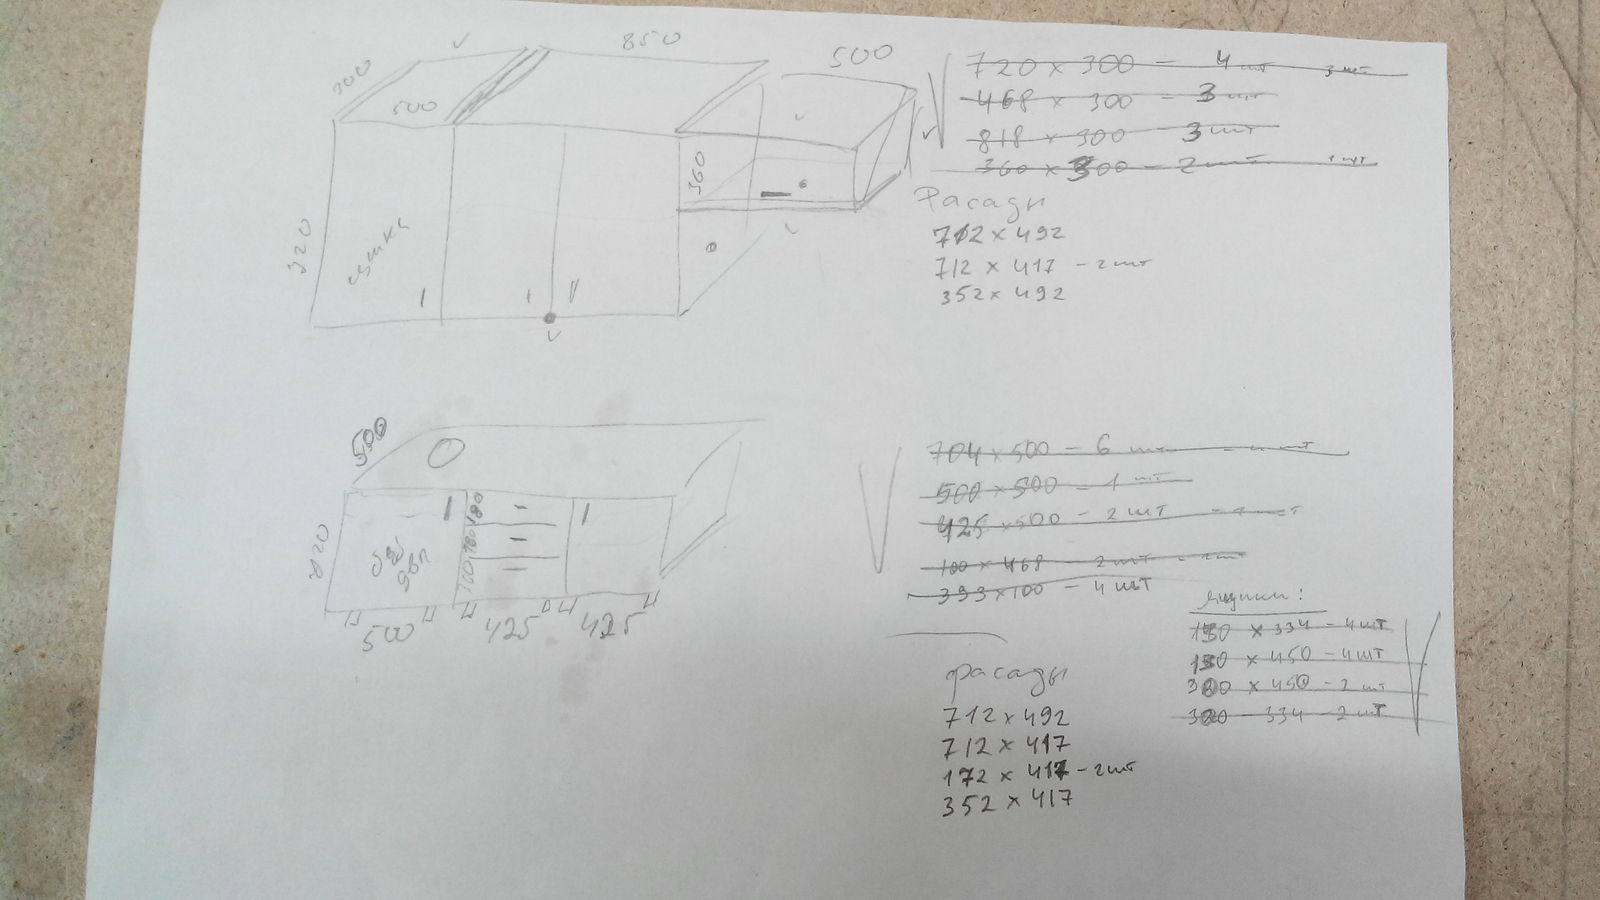 850
500
300
500
720 × 300 – 4 шт 3 шт
468 × 300 – 3 шт
818 × 300 – 3 шт
360 × 300 – 2 шт 1 шт
360
сушка
Фасады
712 × 492
712 × 417 – 2 шт
352 × 492
500
704 × 500 – 6 шт
500 × 500 – 1 шт
425 × 500 – 2 шт
100 × 468 – 2 шт
393 × 100 – 4 шт
820
180
180
360
500
425
425
Ящики:
150 × 334 – 4 шт
150 × 450 – 4 шт
300 × 450 – 2 шт
300 – 334 – 2 шт
фасады
712 × 492
712 × 417
172 × 417 – 2 шт
352 × 417